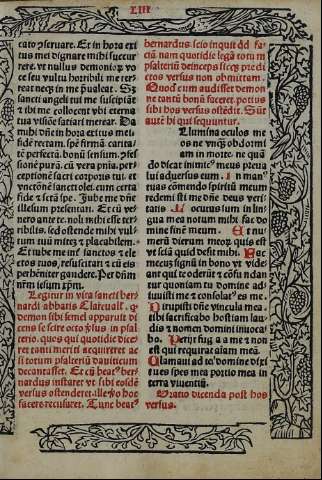 LIII
cato pseruare. Et in hora exi
tus mei dignare mihi succur
rere. vt nullus demonicꝰ vo
ce seu vultu horribili me ter
reat necqꝫ in me pualeat. Sꝫ
sancti angeli tui me suscipiāt
⁊ tibi me collocent vbi eterna
tua visiōe satiari merear. Da
mihi dñe in hora exitus mei
fidē rectam. spē firmā. carita
tē perfectā. bonū sensum. ⁊ cōf
essionē purā. cū vera pnīa. per
ceptionē sacri corporis tui. et
vnctionē sancti olei. cum certa
fide ⁊ sctā spe. Jube me dñe
illesum presentari. Et cū ve
nero ante te. noli mihi esse ter
ribilis. sed ostende mihi vul
tum tuū mitez ⁊ placabilem.
Et iube me inf sanctos ⁊ ele
ctos tuos, resuscitari ⁊ cū eis
perhēniter gaudere. Per dñm
nr̄m iesum xp̄m.
Legitur in vita sancti ber
nardi abbatis Clareuall. ꝙ
demon sibi semel apparuit di
cens se scire octo vsus in psal
terio. quos qui quotidie dice
ret
psalteriū dauiticum
decantaret. Et cū beatꝰ ber
nardus instaret vt sibi eosdē
versus ostenderet. ille hoc
facere recusaret. Tunc beatꝰ
bernardus. scio inquit qd fa
ciā nam quotidie legā totum
psalteriū deinceps sicqꝫ predi
ctos versus non obmittam.
Quod cum audisset demon
ne tantū bonū faceret. potius
sibi hos versus ostēdit. Sūt
autē hi qui sequuntur.
Illumina oculos me
os ne vnqꝫ obdormi
am in morte. ne quā
do dicat inimicꝰ meus preua
lui aduersus eum. In manꝰ
tuas cōmendo spiritū meum
redemisti me dñe deus veri
tatis. Locutus sum in lin
gua mea notum mihi fac do
mine finē meum. Et nu
merū dierum meoꝝ. quis est
vt sciā quid desit mihi. Fac
mecuꝫ signū in bono vt vide
ant qui te oderūt ⁊ cōfundan
tur quoniam tu domine ad
iuuisti me ⁊ consolatꝰ es me.
Dirupisti dñe vincula mea
tibi sacrificabo hostiam lau
dis ⁊ nomen domini inuoca
bo. Perijt fuga a me ⁊ non
est qui requirat aīam meā.
Clamaui ad te domine dixi
tu es spes mea portio mea in
terra viuentiū.
Oratio dicenda post hos
versus.